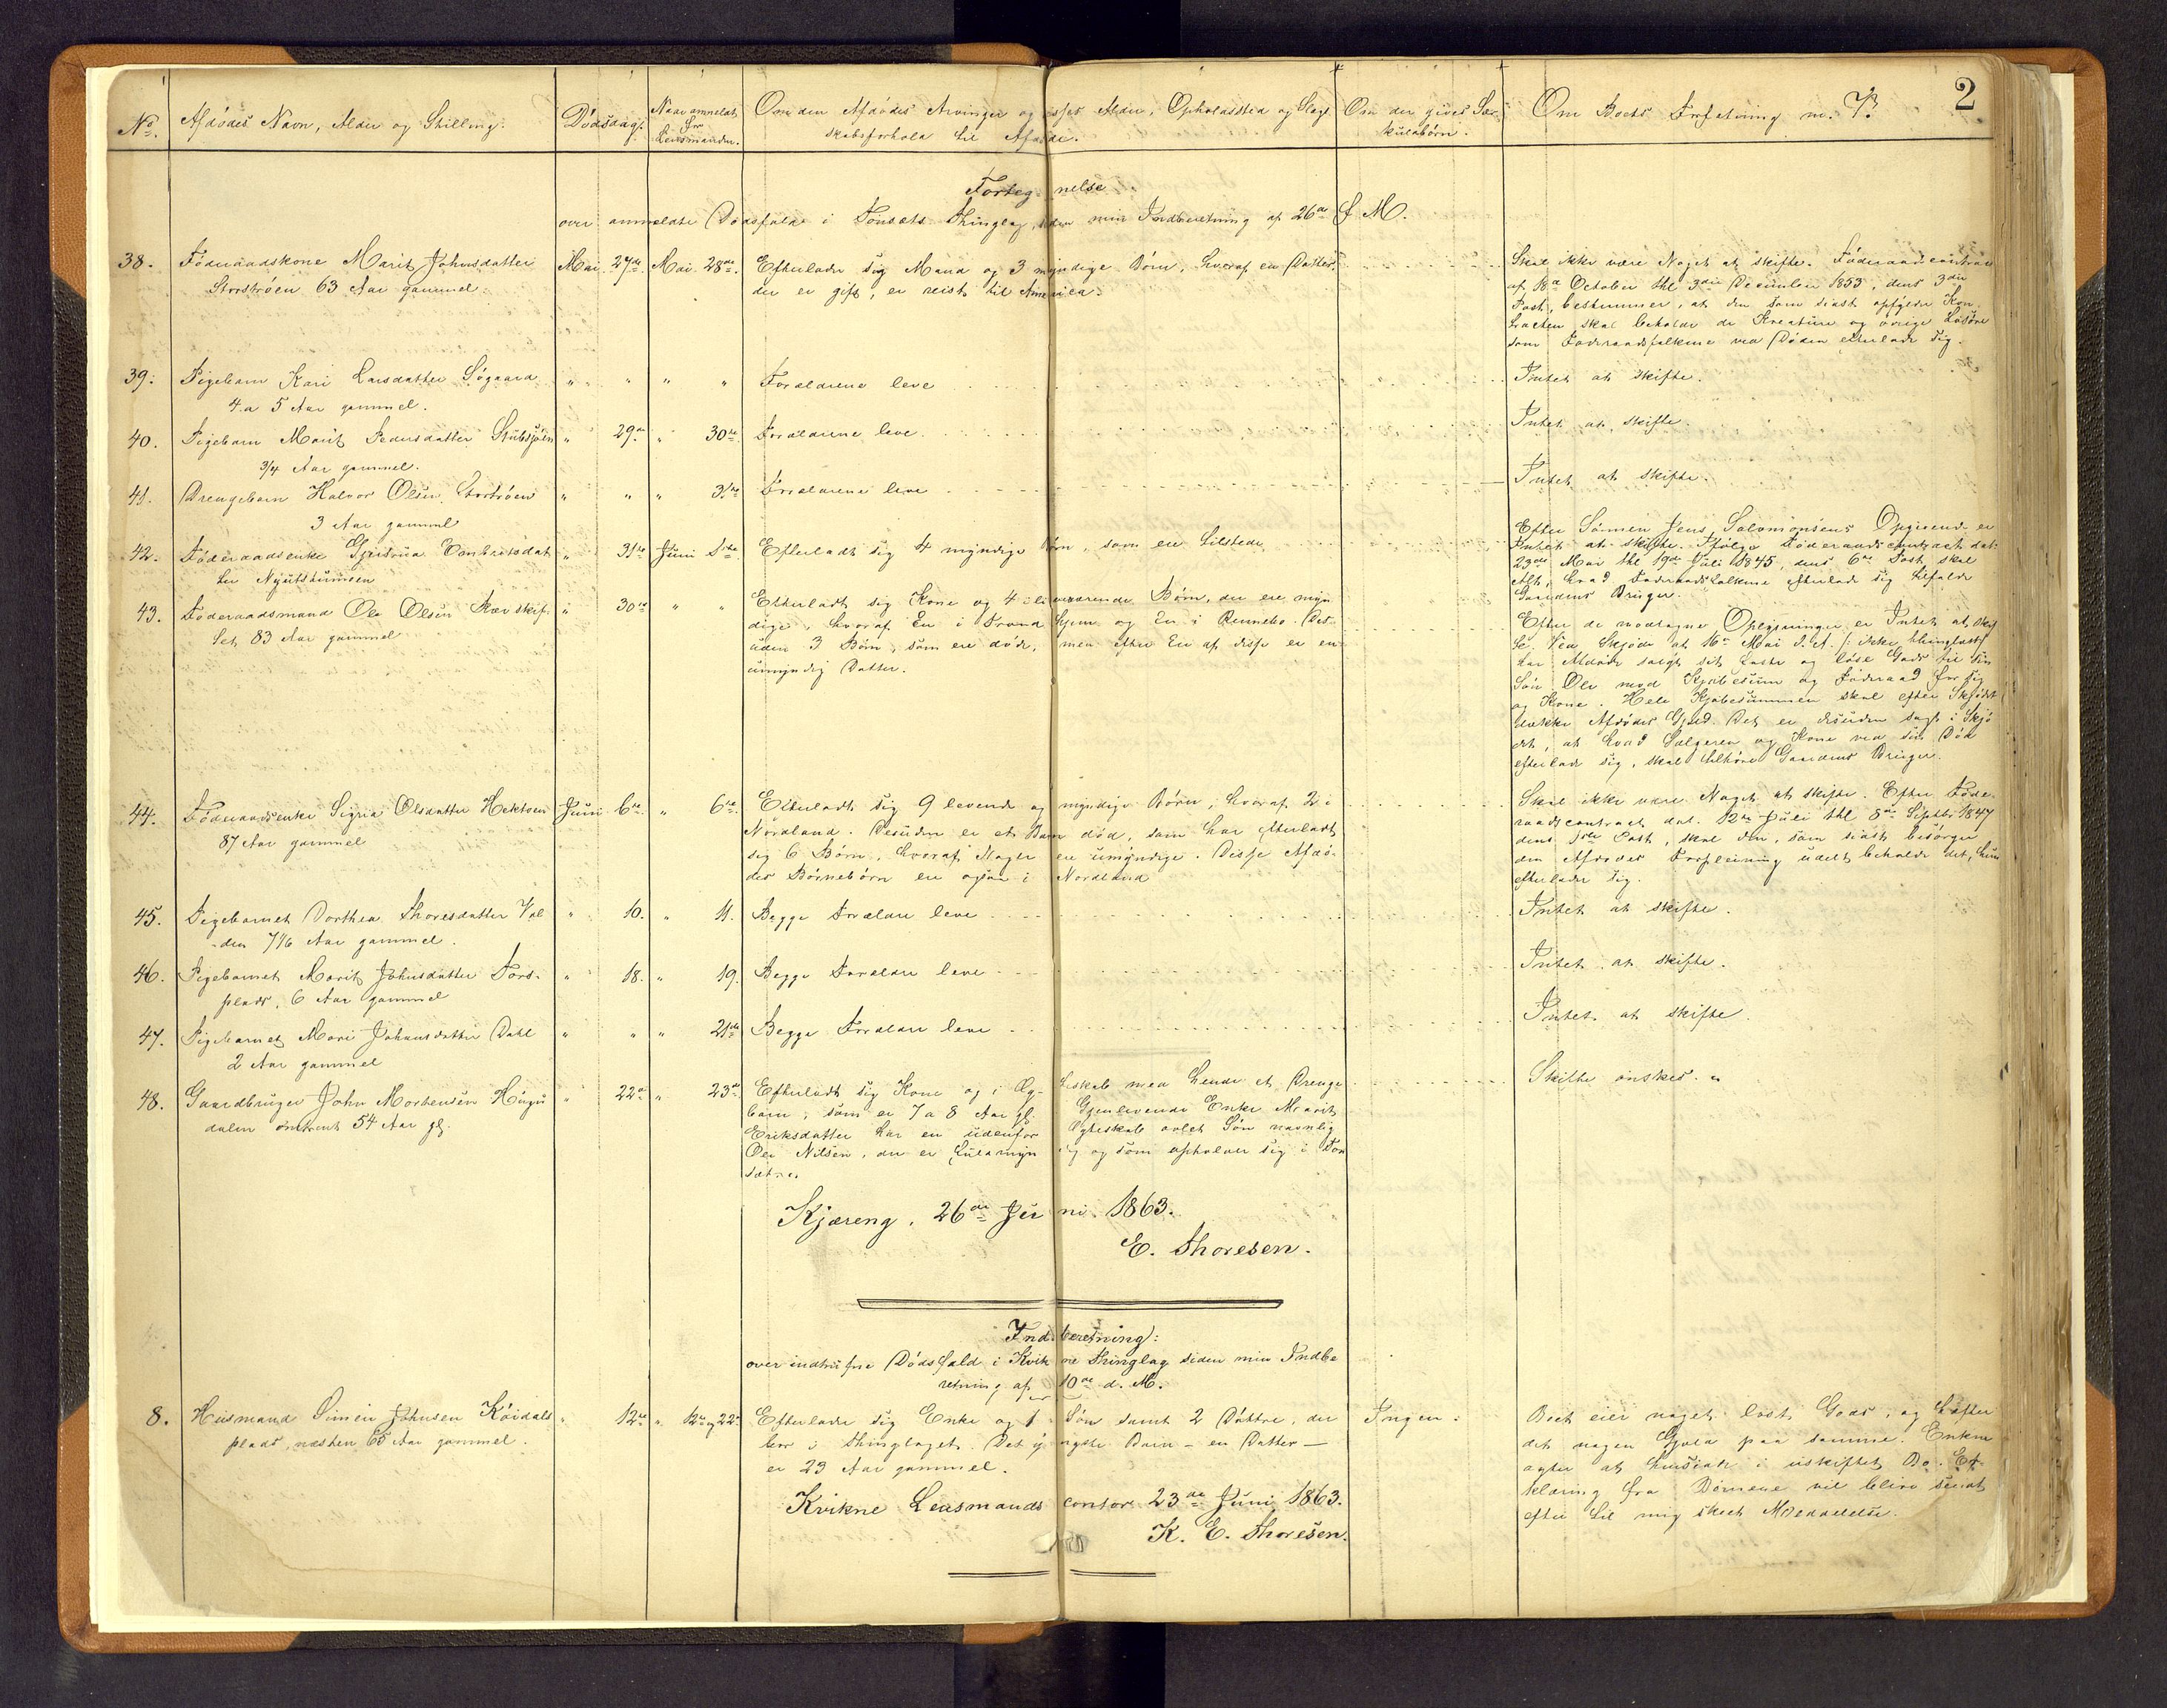 2
No. Afdødes Navn, Alder og Stilling. Dødsdag. Naar anmeldt for Lensmanden. Om den Afdødes Arvinger og disses Alder, Opholdssted og Slægt- Om der gives Sær- Om Boets Forfatning m. V.
skabsforhold til Afdøde. kulsbørn.
Forteg nelse
over anmeldte Dødsfald i Tønsets Thinglag, siden min Indberetning af 26de f. M.
38. Føderaadskone Marit Johnsdatter Mai 27de Mai 28de. Efterlader sig Mand og 3 myndige Børn, hvoraf en Datter,
Storstrøen 63 Aar gammel. der er gift, er reist til America.
Skal ikke være Noget at skifte. Føderaadscontract
af 18de October thl. 3die December 1853, dens 3die
Post, bestemmer, at den som sidst opfylder Kon-
tracten, skal beholde de Kreature og øvrige Løsøre
som Føderaadsfolkene ved Døden efterlade sig.
39. Pigebarn Kari Larsdatter Søgaard " " " " Forældrene leve Intet at skifte.
4 a 5 Aar gammel.
40. Pigebarn Marit Pedersdatter Stubsjøen " 29de " 30te Forældrene leve. Intet at skifte.
3/4 Aar gammel.
41. Drengebarn Halvor Olsen Storstrøen " " " 31te Forældrene leve Intet at skifte.
3 Aar gammel
42. Føderaadsenke Embretsdat- " 31te Juni 1ste Efterladt sig 4 myndige Børn, som ere tilstede
ter Nytrøtrumoen
Efter Sønnen Jens Salomonsens Opgivende er
Intet at skifte. Ifølge Føderaadscontract dat.
23de Mai thl 19de Juli 1845, dens 6te Post, skal
Alt, hvad Føderaadsfolkene efterlade sig tilfalde
Gaardens Bruger.
43. Føderaadsmand Ole Olsen " 30te " " Efterladt sig Kone og 4 tilværende Børn, der ere myn-
83 Aar gammel dige, hvoraf En i Trond hjem og En i Rennebo. Des-
uden 3 Børn, som ere døde, men efter En af disse er en
umyndig Datter.
Efter de modtagne Oplysninger er Intet at skif-
te. Ved Skjøde af 16de Mai d. A. /: ikke thinglæst:/
har Afdøde solgt sit faste og løse Gods til sin
Søn Ole mod Kjøbesum og Føderaad for sig
og Kone. Hele Kjøbesummen skal efter Skjødet
dække Afdødes Gjæld. Det er desuden sagt i Skjø-
det, at hvad Sælgeren og Kone ved sin Død
efterlade sig, skal tilhøre Gaardens Bruger.
44. Føderaadsenke Sigrid Olsdatter Hektoen Juni 6te " 6te. Efterladt sig 9 levende og myndige Børn, hvoraf 2 i
87 Aar gammel Nordland. Desuden er et Barn død, som har efterladt
sig 6 Børn, hvoraf Nogle ere umyndige. Disse Afdø-
des Børnebørn ere ogsaa i Nordland
Skal ikke være Noget at skifte. Efter Føde-
raadscontract dat. 12te Juli thl 8de Septbr 1847
dens 1ste Post, skal den, som sidst besørger
den Afdødes Forpleining udelt beholde det, hun
efterlader sig.
45. Pigebarnet Dorthea Thoresdatter Vol- " 10. " 11. Begge Forældre leve Intet at skifte.
den 7/16 Aar gammel.
46. Pigebarnet Marit Johnsdatter Fors- " 18. " 19. Begge Forældre leve Intet at skifte.
plads, 6 Aar gammel
47. Pigebarnet Mari Johansdatter Dahl " " " 21de Begge Forældre leve Intet at skifte.
2 Aar gammel
48. Gaardbruger John Mortensen " 22de " 23de Efterladt sig Kone og i Æg- teskab med hende et Drenge- Skifte ønskes.
dalen omtrent 54 Aar gl. barn, som er 7 a 8 Aar gl. Gjenlevende Enke Marit
Eriksdatter har en udenfor Ægteskab avlet Søn navnlig
Ole Nilsen, der er fuldmyn dig og som opholder sig i Tøn-
set.
Kjæreng, 26de Juni 1863.
E. Thoresen.
Indberetning:
over indtrufne Dødsfald i Kvikne Thinglag siden min Indbe-
retning af 10de d. M.
8. Husmand Simen Johnsen Kòidals- " 12te " 12te og 22de Efterlader sig Enke og 1 Søn samt 2 Døttre, der Ingen. Boet eier noget løst Gods, og hæfter
plads, næsten 65 Aar gammel. bor i Thinglaget. Det yngste Barn – en Datter –
er 23 Aar gammel.
det nogen Gjæld paa samme. Enken
agter at hensidde i uskiftet Bo. Er-
klæring fra Børnene vil blive sendt
efter til mig skeet Meddelelse.
Kvikne Lensmandscontor 23de Juni 1863.
K. E. Thoresen.